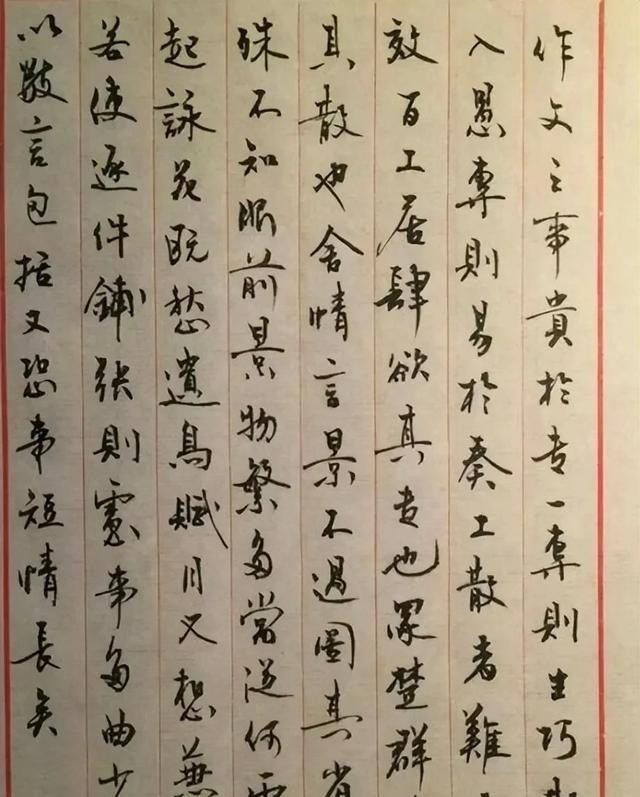 作文之事貴於专一專則生巧
入愚專則易於奏工散者難
效百工居肆欲其专也眾楚群
其散也舍情言景不過圖其省
殊不知眼前景物繁多當從何
起詠花既愁遺鳥賦月又想兼
若使逐件鋪張則慮事多曲少
以數言包括又恐事短情長矣